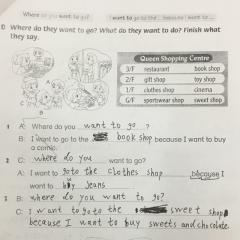 Where do you want to go? I want to go to the ... because I want to ...
D Where do they want to go? What do they want to do? Finish what
they say.
Queen Shopping Centre
3/F restaurant book shop
2/F gift shop toy shop
1/F clothes shop cinema
G/F sportswear shop sweet shop
A
B
C
1 A: Where do you want to go ?
B: I want to go to the book shop because I want to buy
a comic.
2 C: where do you want to go?
A: I want to goto the clothes shop because I
want to buy jeans
3 B: where do you want to go?
C: I want to goto the sweet shop
because I want to buy sweets and chocolate.